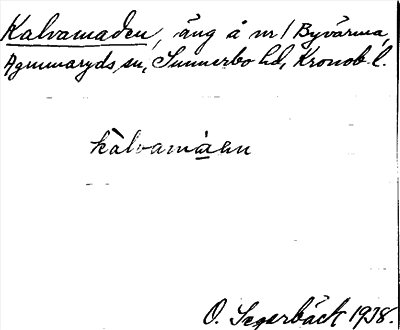 Kalvamaden, äng å nr 1 Byvärma,
Agunnaryds sn, Sunnerbo hd, Kronob. l.
kàlvamàan
O. Segerbäck 1938.